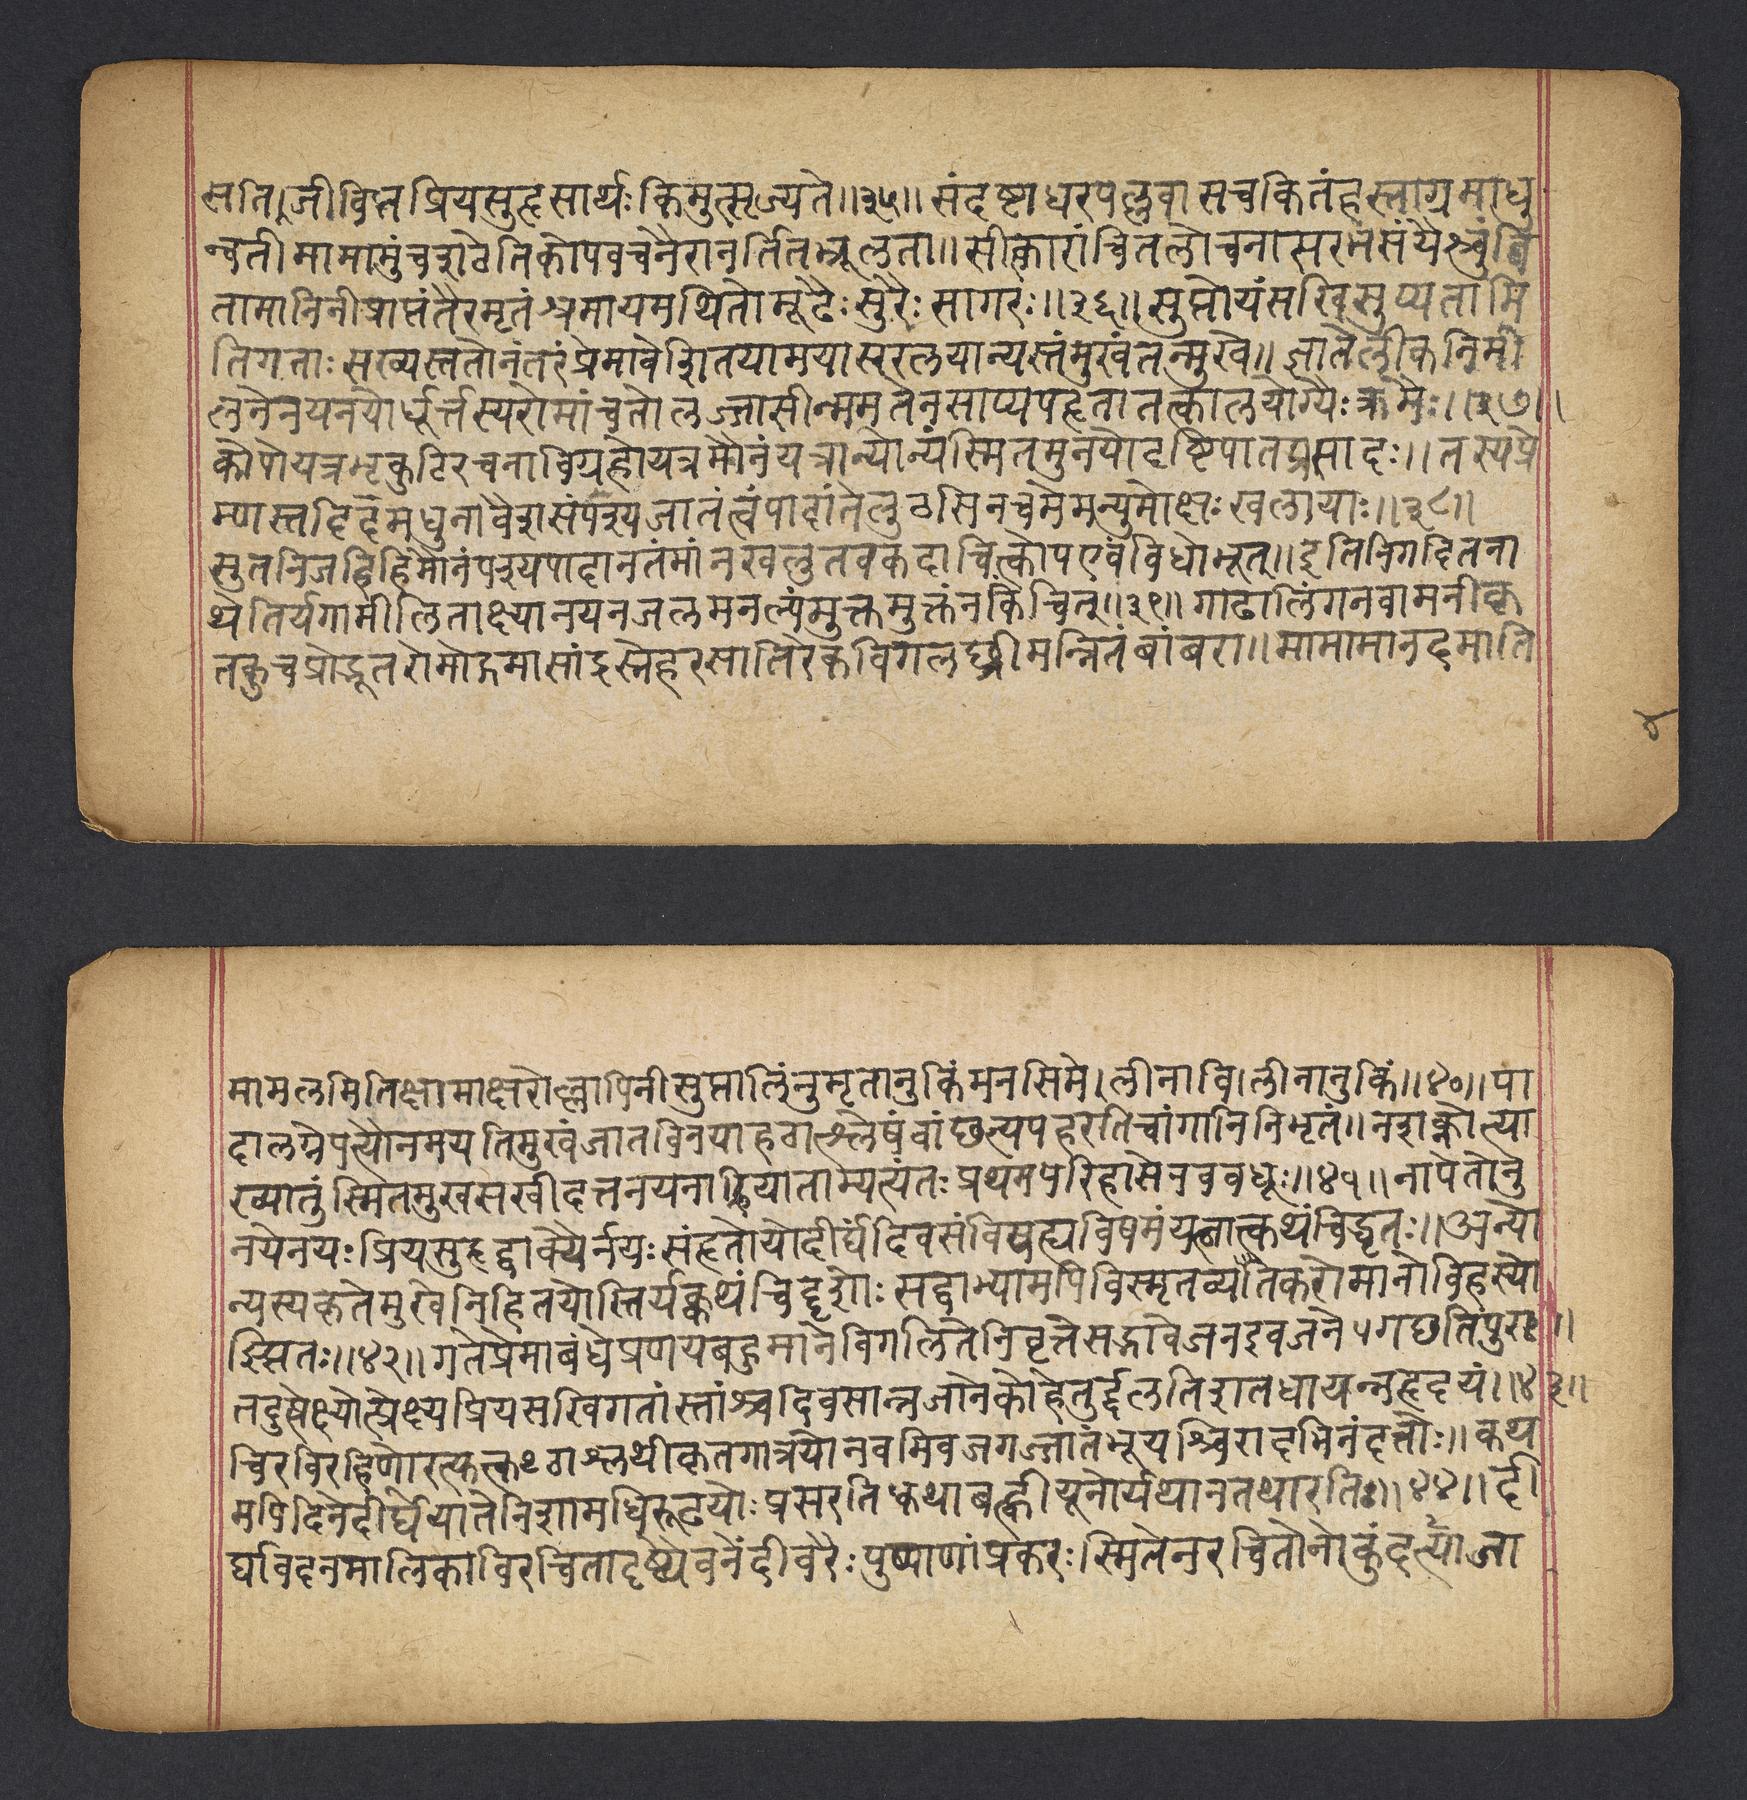 सति।जीवितप्रियसुहृसार्थः किमुत्सृज्यते॥३५॥ संदष्टाधरपल्लवा सचकितंहस्ताग्रमाधु
न्वतीमामामुंचशठेतिकोपवचनैरानर्तितभ्रूलता॥सीत्कारांचितलोचनासरभसंयैश्चुंबि
तामानिनीप्राप्तंतैरमृतंश्रमायमथितोमूढैःसुरैःसागरः॥३६॥सुप्तोयंसखिसुप्यतामि
तिगताःसख्यस्ततोनंतरंप्रेमावेशितयामयासरलयान्यस्तंमुखंतन्मुखे॥ज्ञातेलीकनिमी
लनेनयनयोर्धूर्त्तस्यरोमांचतोलज्जासीन्ममतेनसाप्यपहृतातत्कालयोग्यैःक्रमैः॥३७॥
कोपोयत्रभृकुटिरचनाविग्रहोयत्रमौनंयत्रान्योन्यंस्मितमुनयोदृष्टिपातप्रसादः॥तस्यप्रे
म्णस्तदिदमधुनावैशसंपश्यजातंत्वंपादांतेलुठसिनचमेमन्युमोक्षःखलायाः॥३८॥
सुतनिजहिहिमौनंपश्यपादानतंमांनखलुतवकदाचित्कोपएवंविधोभूत्॥इतिनिगदितना
थेतिर्यगामीलिताक्ष्यानयनजलमनल्पंमुक्तमुक्तंनकिंचित्॥३९॥गाढालिंगनवामनीकृ
तकुचप्रोद्भूतरोमोद्गमासांद्रस्नेहरसातिरेकविगलछ्रीमन्नितंबांबरा॥मामामानदमाति
४
मामलमितिक्षामाक्षरोल्लापिनीसुप्तालिंनुमृतानुकिंमनसिमे।लीनावि।लीनानुकिं॥४०॥पा
दालग्नेपत्यौनमयतिमुखंजातविनयाहठाश्लेषंवांछत्यपहरतिचांगानिनिभृतं॥नशक्नोत्या
ख्यातुंस्मितमुखसखीदत्तनयनाह्रियाताम्यत्यंतःप्रथमपरिहासेनववधूः॥४१॥नापेतोनु
नयेनयःप्रियसुहृद्वाक्यैर्नयःसंहृतोयोदीर्घंदिवसंविषह्यविषमंयत्नात्कथंचिद्धृतः॥अन्यो
न्यस्यकृतेमुखेनिहितयोस्तिर्यक्कथंचिद्दृशोःसद्वाभ्यामपिविस्मृतव्यतिकरोमानोविहस्यो
ज्झितः॥४२॥गतेप्रेमाबंधेप्रणयबहुमानेविगलितेनिवृत्तेसद्भावेजनइवजनेगछतिपुरः॥
तदुत्प्रेक्ष्योत्प्रेक्ष्यप्रियसखिगतांस्तांश्चदिवसान्नजानेकोहेतुर्द्दलतिशतधायन्नहृदयं॥४३॥
चिरविरहिणोरत्युत्कण्ठाश्लथीकृतगात्रयोनवमिवजगज्जातंभूयश्चिरादभिनंदत्तोः॥कथ
मपिदिनेदीर्घेयातेनिशामधिरूढयोःप्रसरतिकथाबह्वीयूनोर्यथानतथारतिः॥४४॥दी
र्घाविंदनमालिकाविरचितादृष्ट्यैवनेंदीवरैःपुष्पाणांप्रकरःस्मितेनरचितोनोकुंदत्याजा